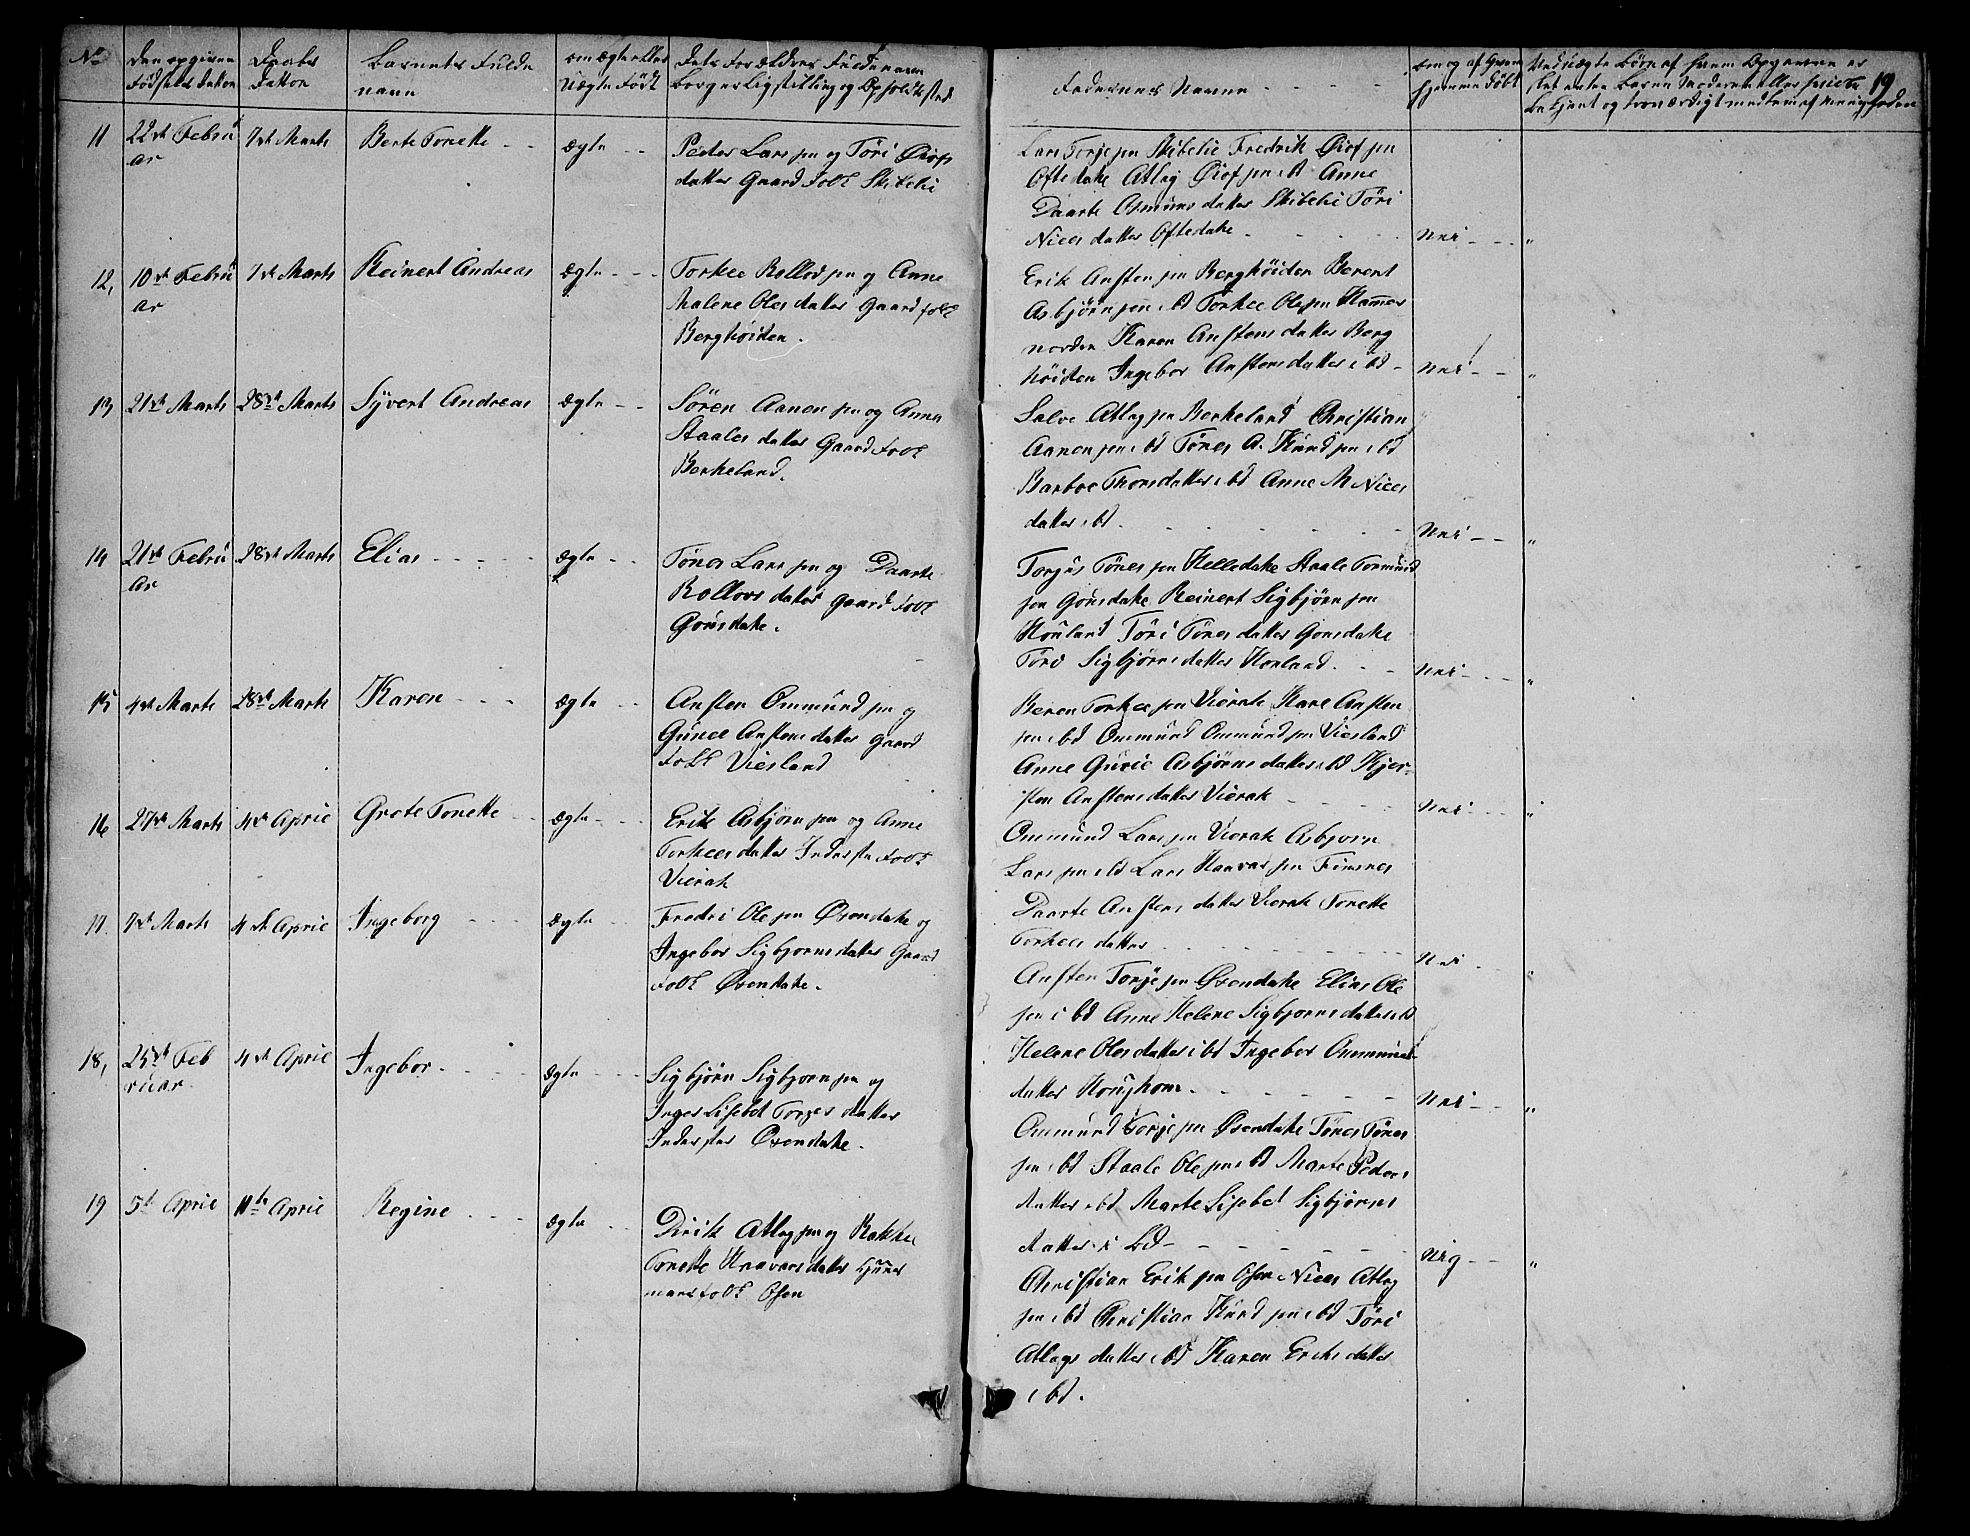 No
Den opgivne
Fødsels datton
Daabs
Datton
Barnets Fulde
navn
om ægte eller
Uægte Født
dets Forældres Fulde navn
borgerlig stilling og Opholdssted
Faddernes Navne
om og af hvem
hjemme døbt
19
11
22de Febru
ar
7de Marts
Berte Tonette
ægte
Peder Lars sen og Töri Öiofs
datter Gaard Folk Skibeli
Lars Torje sen Skibelie Fredrik Öiof sen
Oftedale Atlag Öiof sen ibd Anne
Daarte Osmuns datter Skibelie Töri
Niels datter Oftedale
Nei
12,
10de Febru
ar
7de Marts
Reinert Andreas
ægte
Torkel Rollov sen og Anne
Malene Oles datter Gaard folk
Berghöiden.
Erik Ansten sen Berghöiden Berent
Asbjörn sen ibd Torkel Ole sen Hammer
norden Karen Anstens datter Berg
höiden Ingebor Anstens datter ibd
Nei
13
21de Marts
28de Marts
Syvert Andreas
ægte
Sören Aanen sen og Anne
Staales datter Gaard Folk
Berkeland.
Salve Atlag sen Berkeland Christian
Aanen sen ibd Tönes A. Knud sen ibd
Barboe Thorsdatter ibd Anne M Niels
datter ibd.
Nei
14
21de Febru
ar
28de Marts
Elias
ægte
Tönes Lars sen og Daarte
Rollovs datter Gaard Folk
Gönsdale.
Torjus Tönes sen Helledale Staale Tormund
sen Gönsdale Reinert Sigbjörn sen
Houland Töri Tönes datter Gonsdale
Töri Sigbjörns datter Houland.
Nei
15
4de Marts
28de Marts
Karen
ægte
Ansten Ommund sen og
Gunel Anstens datter Gaard
Folk Viesland
Beren Torkel sen Vierak Kare Ansten
sen ibd Ommund Ommund sen Viesland
Anne Gurie Asbjörns datter ibd Kjer-
sten Anstens datter Vierak
Nei
16
27de Marts
4de April
Grete Tonette
ægte
Erik Asbjörn sen og Anne
Torkels datter Inderste Folk
Vierak
Ommund Lars sen Vierak Asbjorn
Lars sen ibd Lars Haavar sen Finsnes
Daarte Anstens datter Vierak Tonette
Torkels datter
Nei
17.
7de Marts
4de April
Ingeborg
ægte
Fredri Ole sen Ösendale og
Ingebor Sigbjorns datter Gaard
Folk Ösendale.
Ansten Torje sen Ösendale Elias Ole
sen ibd Anne Helene Sigbjorns datter ibd
Helene Oles datter ibd Ingebor Ommunds
datter Houghom
Nei
18,
25de Feb
ruar
4de April
Ingebor
ægte
Sigbjörn Sigbjorn sen og
Inger Lisebet Torjes datter
Inderster Ösendale.
Ommund Torje sen Ösendale Tönes Tönes
sen ibd Staale Ole sen ibd Marte Peders
datter ibd Marte Lisebet Sigbjörns
datter i bd
Neig
19
5te April
11te April
Regine
ægte
Dirik Atlag sen og Rakkel
Tonette Haavars datter Huus
mans folk Osen
Christian Erik sen Osen Niels Atlag
sen ibd Christian Knud sen ibd Töri
Atlags datter ibd Karen Eriks datter
ibd.